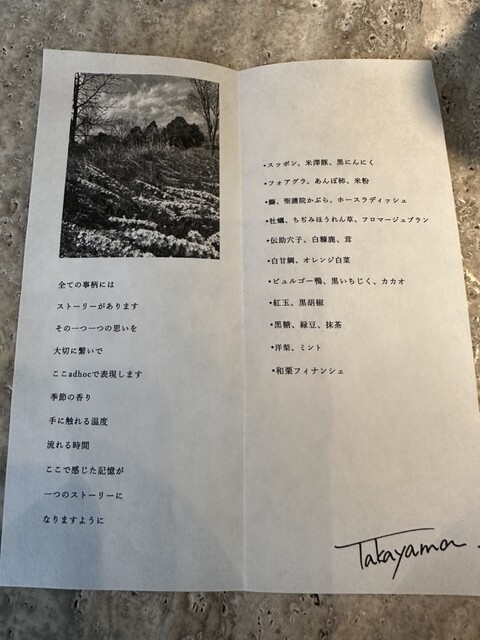 全ての事柄には
ストーリーがあります
その一つ一つの思いを
大切に繋いで
ここadhocで表現します
季節の香り
手に触れる温度
流れる時間
ここで感じた記憶が
一つのストーリーに
なりますように
•スッポン、米澤豚、黒にんにく
•フォアグラ、あんぽ柿、米粉
•鰤、聖護院かぶら、ホースラディッシュ
•牡蠣、ちぢみほうれん草、フロマージュブラン
•伝助穴子、白糠鹿、茸
•白甘鯛、オレンジ白菜
•ビュルゴー鴨、黒いちじく、カカオ
•紅玉、黒胡椒
•黒糖、緑豆、抹茶
•洋梨、ミント
•和栗フィナンシェ
Takayama